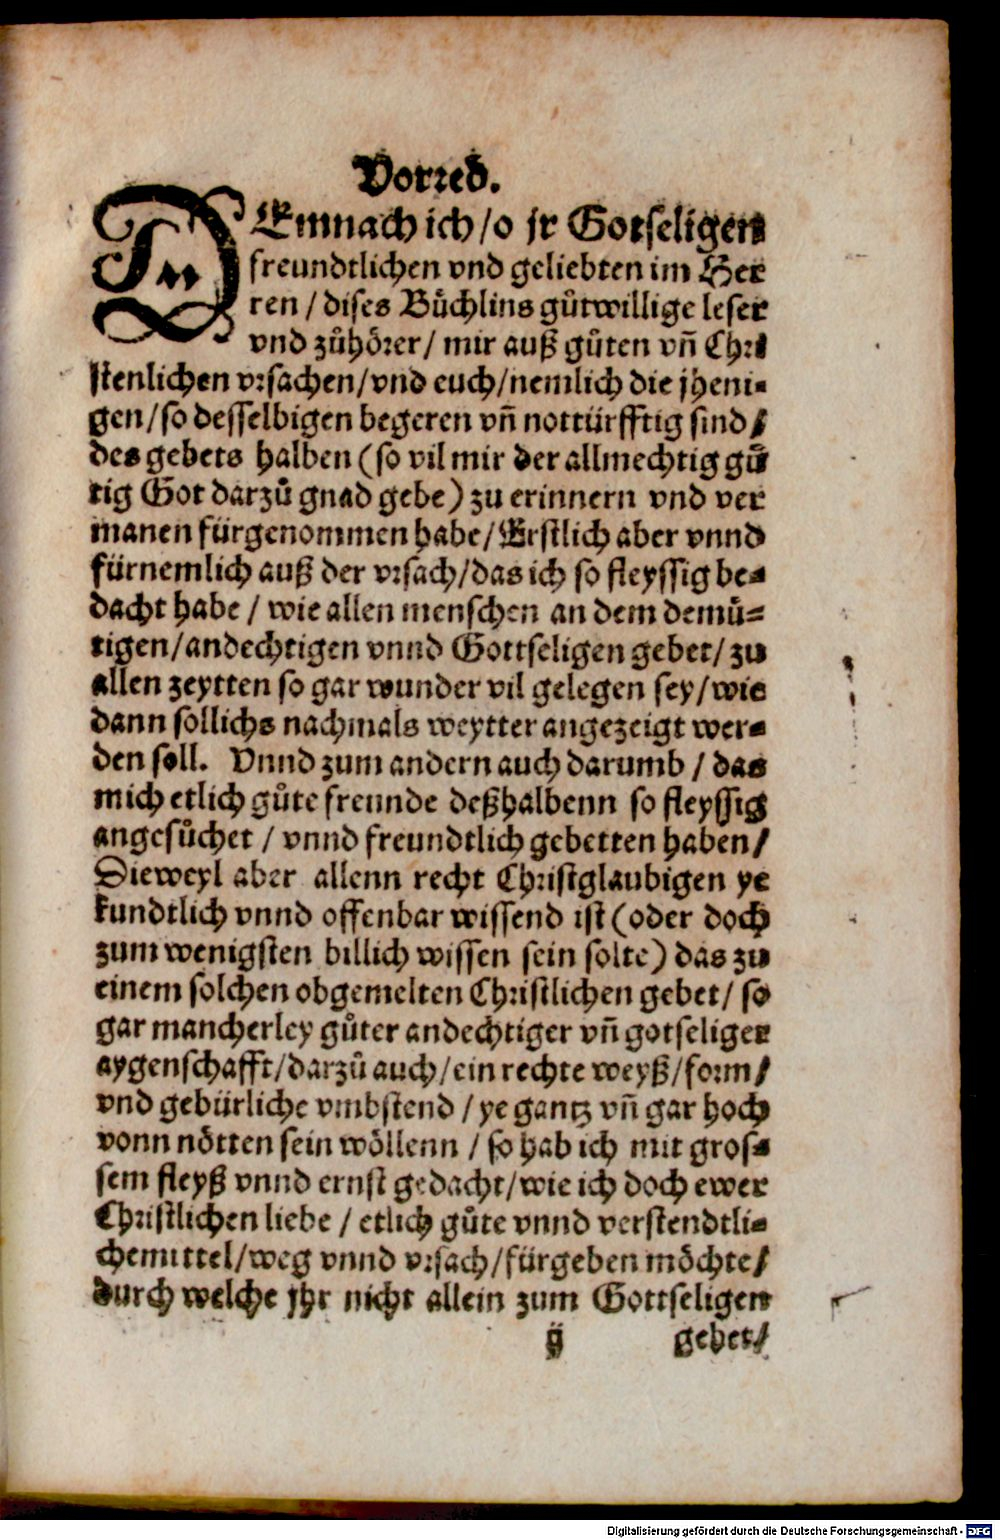 Vorred.
DEmnach ich / o jr Gotseligen
freundtlichen vnd geliebten im Her
ren / dises Bůchlins gůtwillige leser
vnd zůhörer / mir auß gůten vñ Chri
stenlichen vrsachen / vnd euch / nemlich die jheni-
gen / so desselbigen begeren vñ nottürfftig sind /
des gebets halben (so vil mir der allmechtig gů
tig Got darzů gnad gebe) zu erinnern vnd ver
manen fürgenommen habe / Erstlich aber vnnd
fürnemlich auß der vrsach / das ich so fleyssig be-
dacht habe / wie allen menschen an dem demů-
tigen / andechtigen vnnd Gottseligen gebet / zu
allen zeytten so gar wunder vil gelegen sey / wie
dann sollichs nachmals weytter angezeigt wer-
den soll. Vnnd zum andern auch darumb / das
mich etlich gůte freunde deßhalbenn so fleyssig
angesůchet / vnnd freundtlich gebetten haben /
Dieweyl aber allenn recht Christglaubigen ye
kundtlich vnnd offenbar wissend ist (oder doch
zum wenigsten billich wissen sein solte) das zu
einem solchen obgemelten Christlichen gebet / so
gar mancherley gůter andechtiger vñ gotseliger
aygenschafft / darzů auch / ein rechte weyß / form /
vnd gebürliche vmbstend / ye gantz vñ gar hoch
vonn nötten sein wöllenn / so hab ich mit gros-
sem fleyß vnnd ernst gedacht / wie ich doch ewer
Christlichen liebe / etlich gůte vnnd verstendtli-
che mittel / weg vnnd vrsach / fürgeben möchte /
durch welche jhr nicht allein zum Gottseligen
ij gebet /
Digitalisierung gefördert durch die Deutsche Forschungsgemeinschaft - DFG